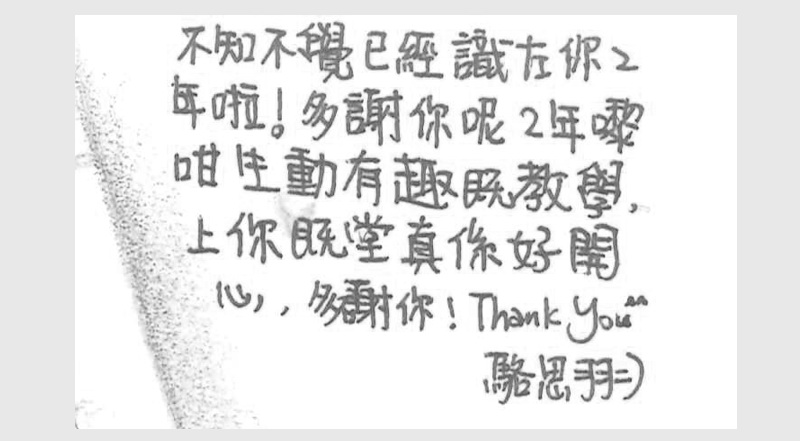 不知不覺已經識左你2
年啦！多謝你呢2年嚟
咁生動有趣既教學，
上你既堂真係好開
心，多謝你！Thank You^^
駱思羽=)